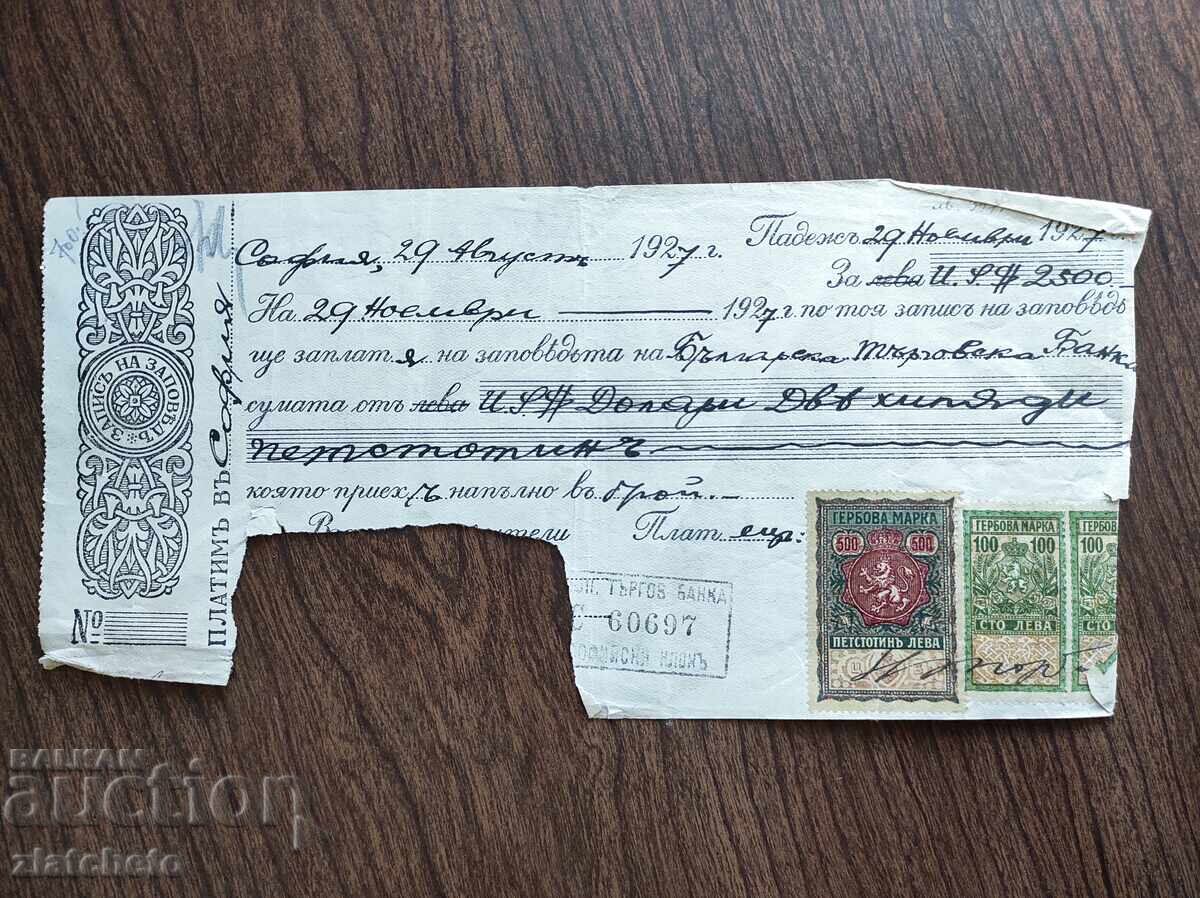 700
ЗАПИСЪ НА ЗАПОВѢДЬ
№
ПЛАТИМЪ ВЪ София
София, 29 Августъ 1927 г.
Падежъ 29 Ноември 1927 г.
За лева U.S.$ 2500.—
На 29 Ноември — 1927 г. по тоя записъ на заповѣдь
ще заплатя на заповѣдьта на Българска Търговска Банка
сумата отъ лева U.S.$ Долари Двѣ хиляди
петстотинъ
която приехъ напълно въ брой.—
Плат ецъ:
ТЪРГОВ БАНКА
60697
СОФИЙСКИ КЛОНЪ
ГЕРБОВА МАРКА
500 500
ПЕТСТОТИНЪ ЛЕВА
ГЕРБОВА МАРКА
100 100
СТО ЛЕВА
ГЕРБОВА
100
СТО ЛЕВА
BALKAN
auction
zlatcheto